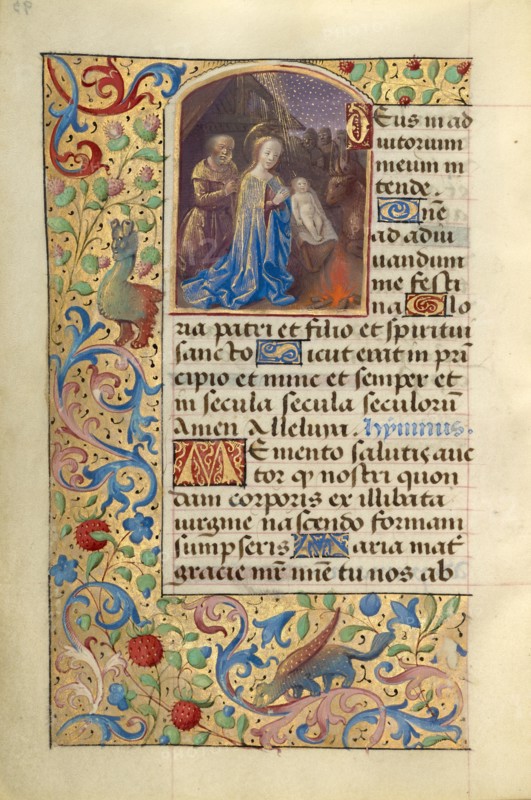 Eus in ad
iutorium
meum in
tende.
Dn̄e
ad adiu
uandum
me festi
na Glo
ria patri et filio et spiritui
sancto Sicut erat in prin
cipio et nunc et semper et
in secula secula seculorū
Amen Alleluya. hymnus.
Memento salutis auc
tor qɔ nostri quon
dam corporis ex illibata
uirgine nascendo formam
sumpseris Maria mat̄
gracie mr̄ mīe tu nos ab